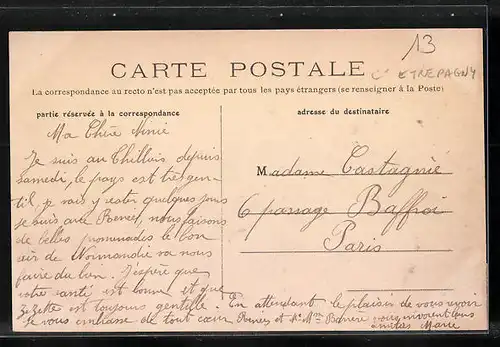 13
Cn ETREPAGNY
CARTE POSTALE
La correspondance au recto n'est pas acceptée par tous les pays étrangers (se renseigner à la Poste)
partie réservée à la correspondance
adresse du destinataire
Ma Chère Ninie
Je suis au Thillois depuis
samedi, le pays est très gen-
til, je vais y rester quelques jours
je suis avec, nous faisons
de belles promenades le bon
air de Normandie va nous
faire du bien. J'espère que
votre santé est bonne et que
Zizette est toujours gentille. En attendant le plaisir de vous voir
je vous embrasse de tout cœur et Mme vous envoient leurs
amitiés Marie
Madame Castagnie
6 passage Baffroi
Paris